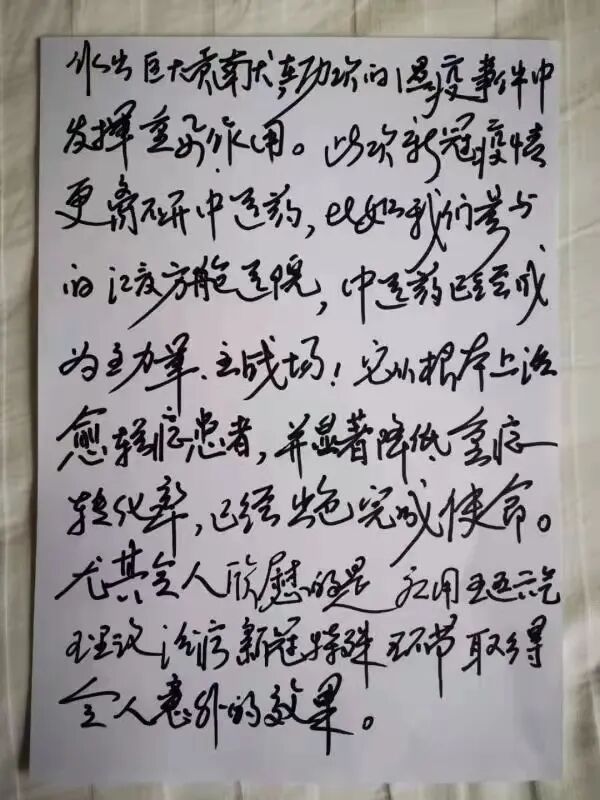 作出巨大贡献大功次的温疫事件中
发挥重要作用。此次新冠疫情
更离不开中医药，比如我们参与
的江夏方舱医院，中医药已经成
为主力军、主战场！它从根本上治
愈轻症患者，并显著降低重症
转化率，已经出色完成使命。
尤其令人欣慰的是应用五运六气
理论治疗新冠特殊环节取得
令人意外的效果。